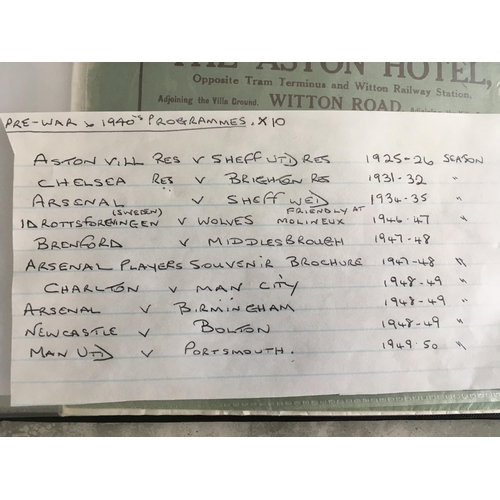 THE ASTON HOTEL,
Opposite Tram Terminus and Witton Railway Station.
Adjoining the Villa Ground. WITTON ROAD,
PRE-WAR & 1940'S PROGRAMMES. X10
ASTON VILL RES V SHEFF UTD RES 1925-26 SEASON
CHELSEA RES V BRIGHTON RES 1931-32 "
ARSENAL V SHEFF WED 1934-35 "
IDROTTSFORENINGEN (SWEDEN) V WOLVES FRIENDLY AT MOLINEUX 1946-47 "
BRENFORD V MIDDLESBROUGH 1947-48 "
ARSENAL PLAYERS SOUVENIR BROCHURE 1947-48 "
CHARLTON V MAN CITY 1948-49 "
ARSENAL V BIRMINGHAM 1948-49 "
NEWCASTLE V BOLTON 1948-49 "
MAN UTD V PORTSMOUTH. 1949-50 "